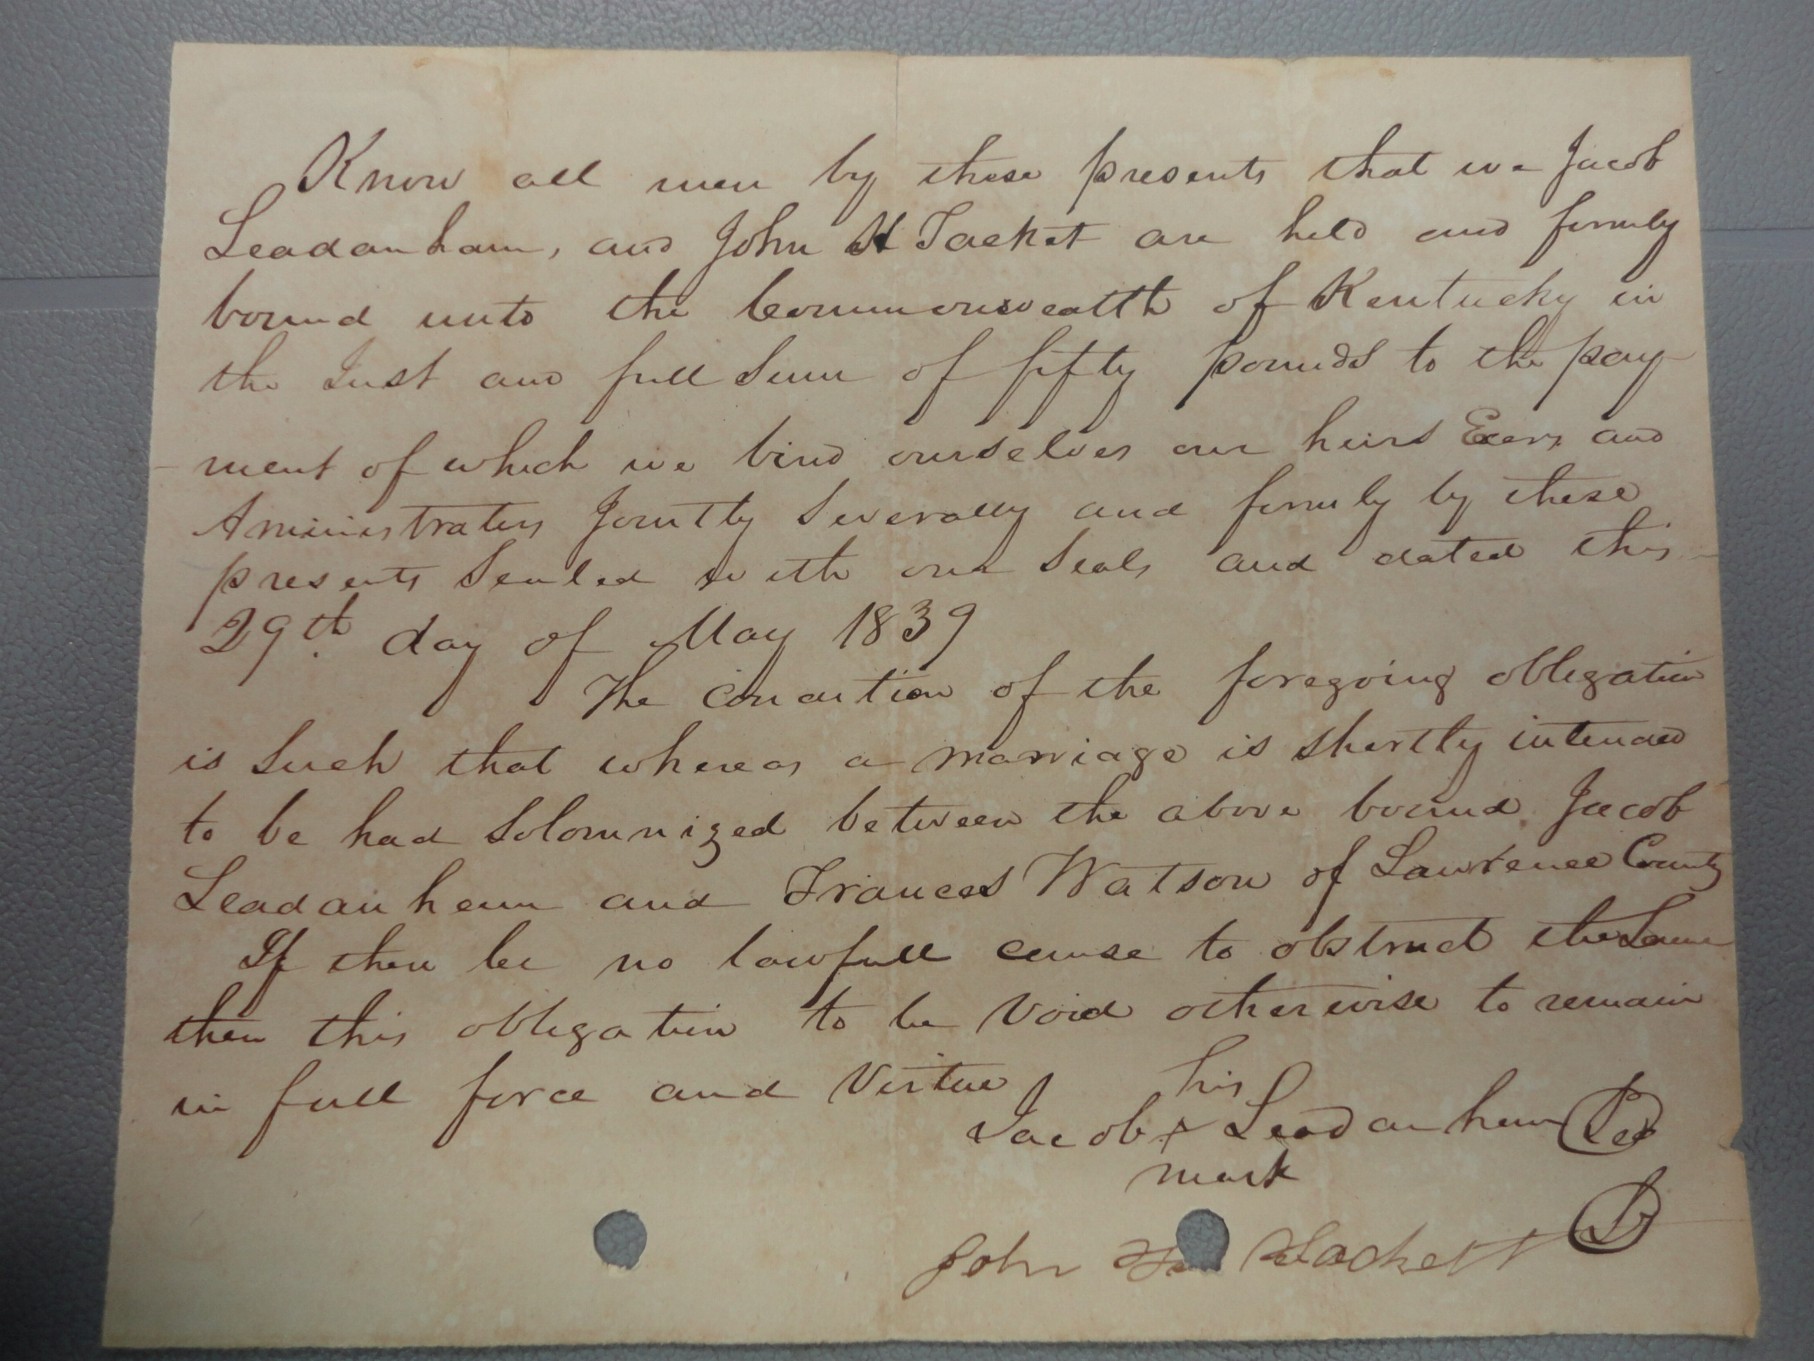 Know all men by these presents that we Jacob
Leadanham, and John H Tacket are held and firmly
bound unto the Commonwealth of Kentucky in
the Just and full Sum of fifty pounds to the pay
ment of which we bind ourselves our heirs Exers and
Aministraters Jointly Severally and firmly by these
presents Sealed with our Seals and dated this
29th day of May 1839
The Condition of the foregoing obligation
is Such that whereas a marriage is shortly intended
to be had Solomnized between the above bound Jacob
Leadanham and Frances Watson of Lawrence County
If there be no lawfull cause to obstruct the Same
then this obligation to be Void otherwise to remain
in full force and Virtue
his
Jacob x Leadanham
mark
John Tackett